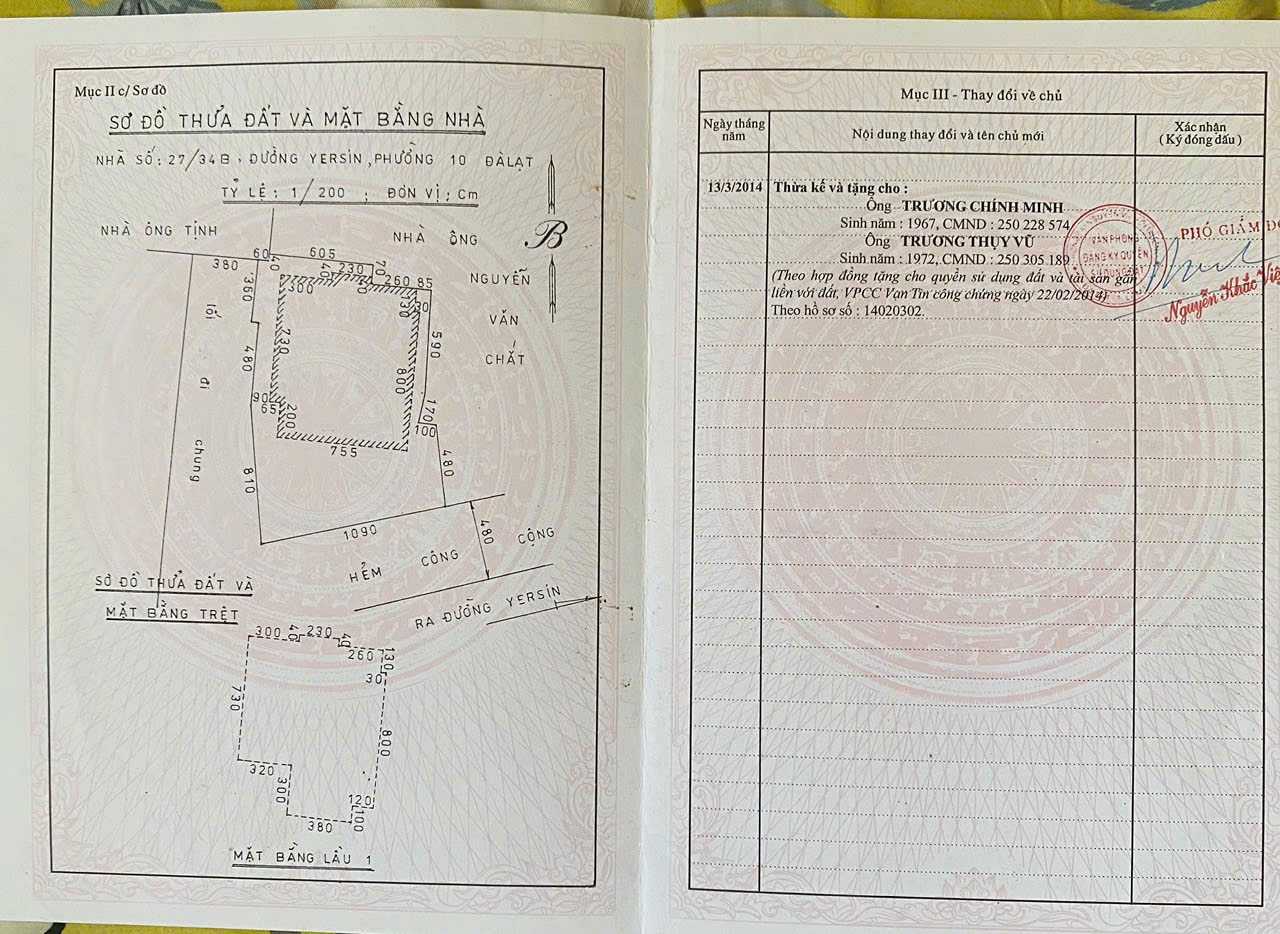 Mục II c/ Sơ đồ
SƠ ĐỒ THỬA ĐẤT VÀ MẶT BẰNG NHÀ
NHÀ SỐ: 27/34B, ĐƯỜNG YERSIN, PHƯỜNG 10 ĐÀLẠT
TỶ LỆ: 1/200 ; ĐƠN VỊ: Cm
NHÀ ÔNG TỊNH
NHÀ ÔNG
NGUYỄN
VĂN
CHẤT
B
380
60
605
40
230
40
70
260
85
300
130
30
360
730
480
590
800
90
65
200
170
100
755
810
480
1090
480
lối đi chung
HẺM CÔNG CỘNG
RA ĐƯỜNG YERSIN
SƠ ĐỒ THỬA ĐẤT VÀ
MẶT BẰNG TRỆT
300
40
230
40
260
130
30
730
800
320
300
120
100
380
MẶT BẰNG LẦU 1
Mục III - Thay đổi về chủ
Ngày tháng năm
Nội dung thay đổi và tên chủ mới
Xác nhận
( Ký đóng dấu )
13/3/2014
Thừa kế và tặng cho :
Ông TRƯƠNG CHÍNH MINH
Sinh năm : 1967, CMND : 250 228 574
Ông TRƯƠNG THỤY VŨ
Sinh năm : 1972, CMND : 250 305 189
(Theo hợp đồng tặng cho quyền sử dụng đất và tài sản gắn
liền với đất, VPCC Vạn Tín công chứng ngày 22/02/2014)
Theo hồ sơ số : 14020302.
VĂN PHÒNG
ĐĂNG KÝ QUYỀN
SỬ DỤNG ĐẤT
PHÓ GIÁM Đ
Nguyễn Khắc Việ